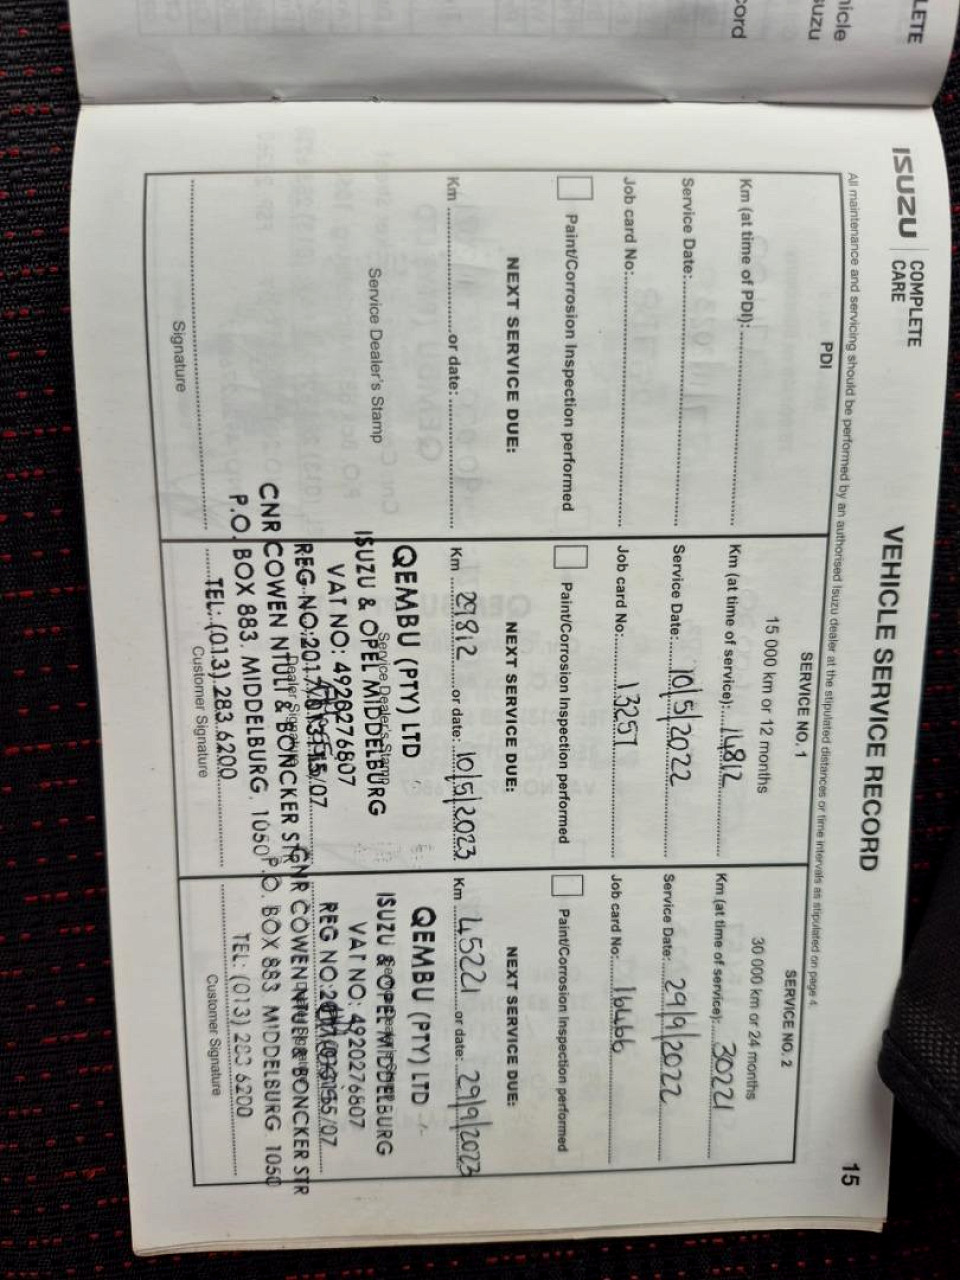 LETE
hicle
suzu
cord
ISUZU
COMPLETE
CARE
VEHICLE SERVICE RECORD
15
All maintenance and servicing should be performed by an authorised Isuzu dealer at the stipulated distances or time intervals as stipulated on page 4.
PDI
Km (at time of PDI):
Service Date:
Job card No:
Paint/Corrosion Inspection performed
NEXT SERVICE DUE:
Km or date:
Service Dealer's Stamp
Signature
SERVICE NO. 1
15 000 km or 12 months
Km (at time of service): 14812
Service Date: 10/5/2022
Job card No: 13257
Paint/Corrosion Inspection performed
NEXT SERVICE DUE:
Km 29812 or date: 10/5/2023
QEMBU (PTY) LTD
Service Dealer's Stamp
ISUZU & OPEL MIDDELBURG
VAT NO: 4920276807
REG NO:
CNR COWEN NTULI & BONCKER STR
P.O. BOX 883. MIDDELBURG. 1050
TEL: (013) 283 6200
Customer Signature
SERVICE NO. 2
30 000 km or 24 months
Km (at time of service): 30221
Service Date: 29/9/2022
Job card No: 16466
Paint/Corrosion Inspection performed
NEXT SERVICE DUE:
Km 45221 or date: 29/9/2023
QEMBU (PTY) LTD
ISUZU & OPEL MIDDELBURG
VAT NO: 4920276807
REG NO:
CNR COWEN NTULI & BONCKER STR
P.O. BOX 883. MIDDELBURG 1050
TEL: (013) 283 6200
Customer Signature